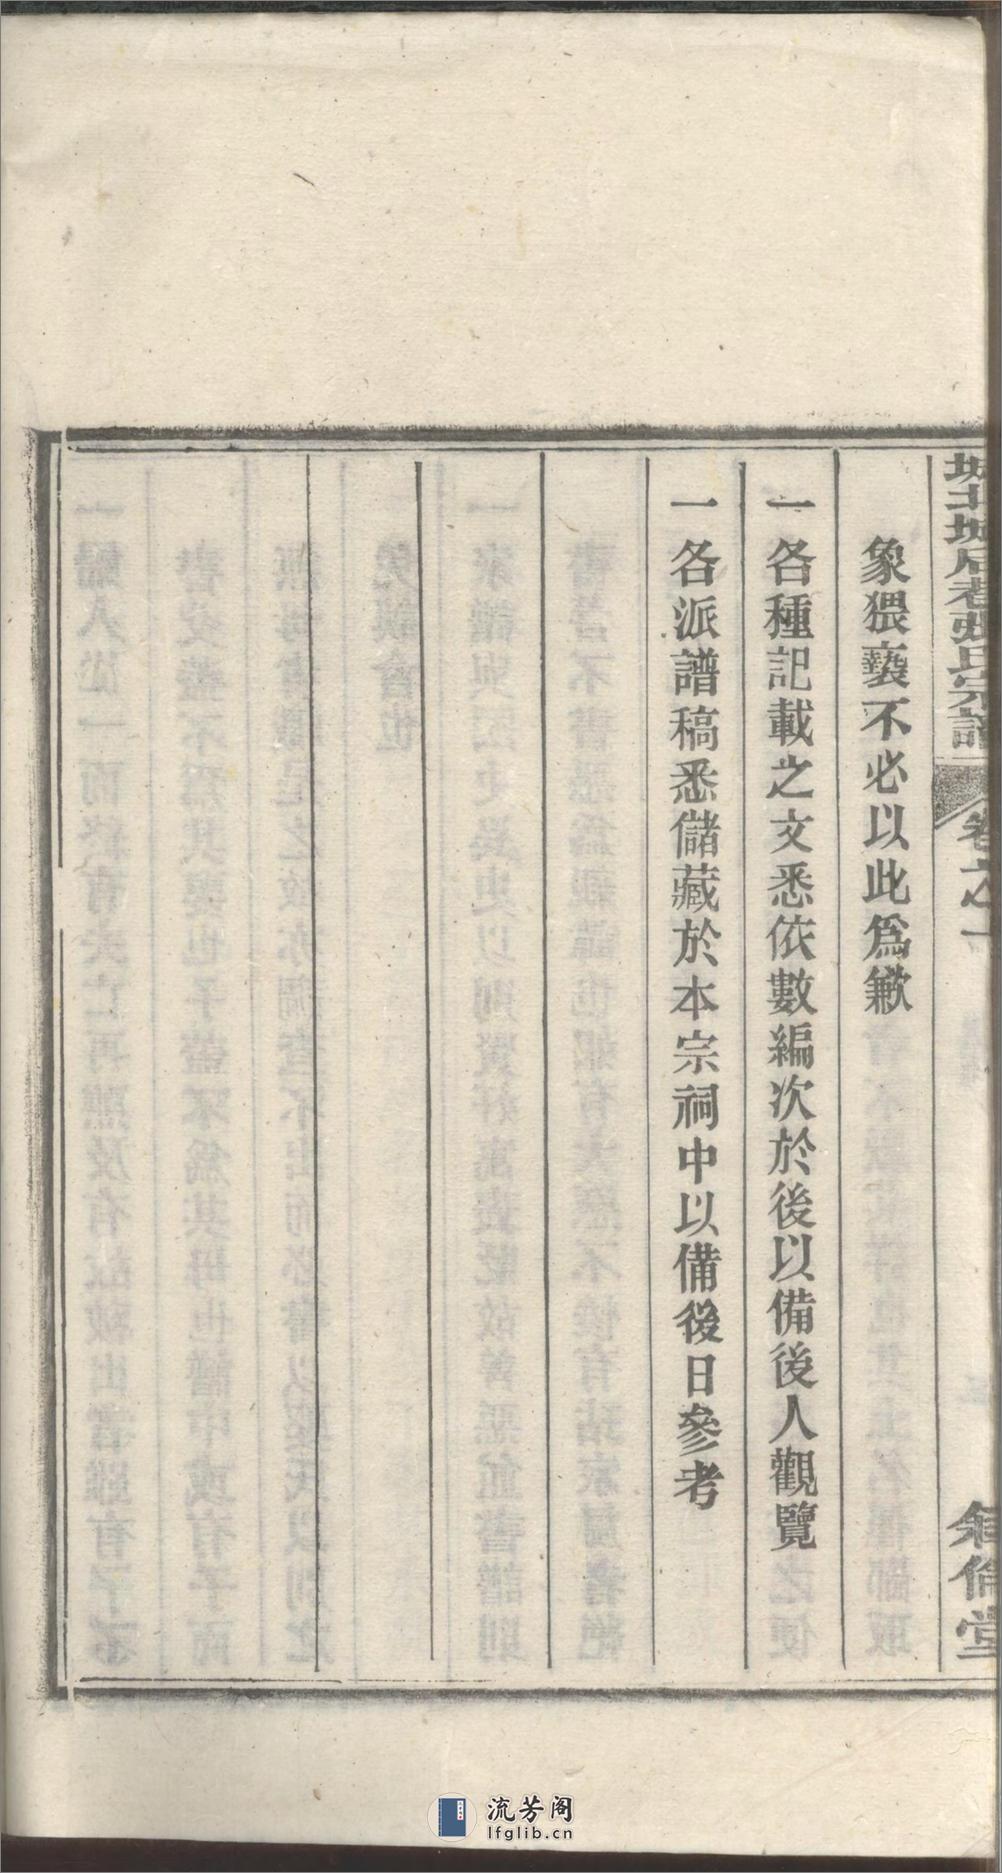 城北城后巷張氏宗譜
卷之一
敘倫堂
象猥褻不必以此爲歉
一各種記載之文悉依數編次於後以備後人觀覽
一各派譜稿悉儲藏於本宗祠中以備後日參考
流芳阁
lfglib.cn